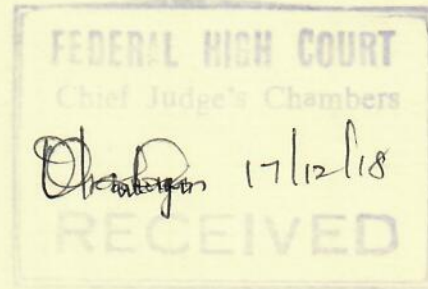 FEDERAL HIGH COURT
Chief Judge's Chambers
17/12/18
RECEIVED